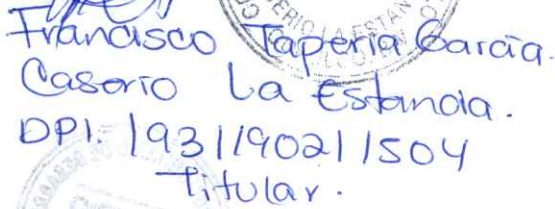 Francisco Taperia Garcia.
Caserio La Estancia.
DPI. 1931190211504
Titular.